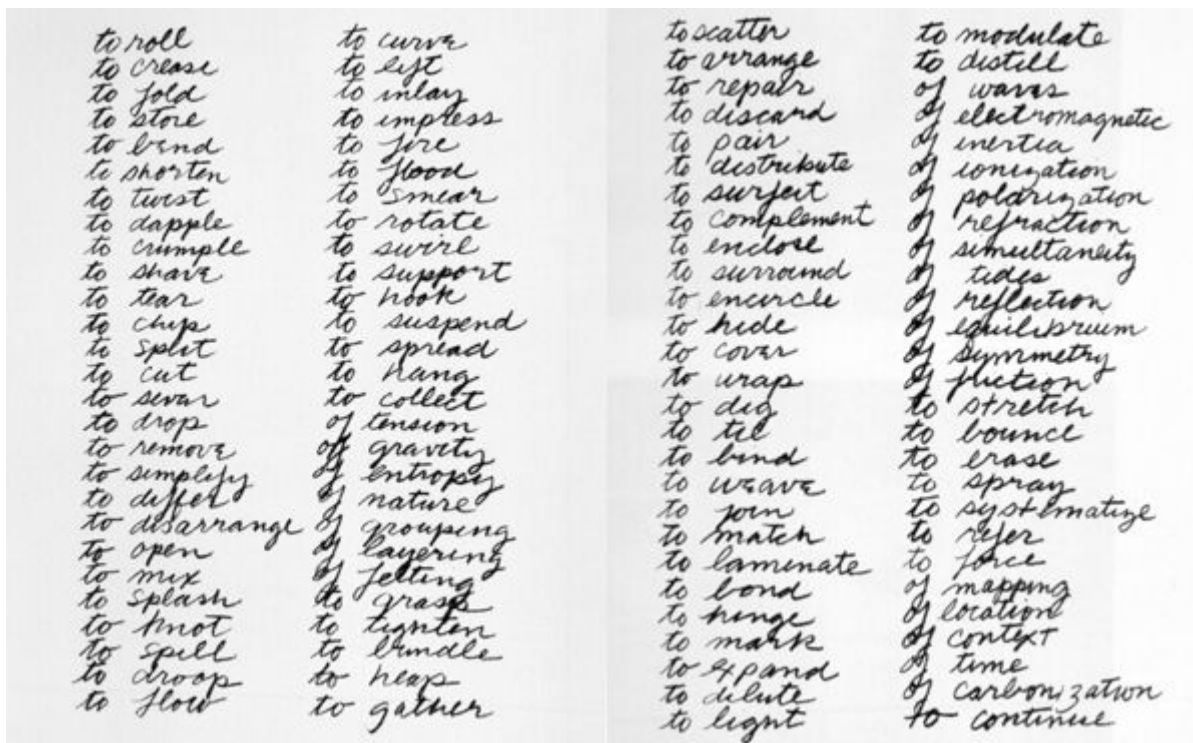 to roll
to crease
to fold
to store
to bend
to shorten
to twist
to dapple
to crumple
to shave
to tear
to chip
to split
to cut
to sever
to drop
to remove
to simplify
to differ
to disarrange
to open
to mix
to splash
to knot
to spill
to droop
to flow
to curve
to lift
to inlay
to impress
to fire
to flood
to smear
to rotate
to swirl
to support
to hook
to suspend
to spread
to hang
to collect
of tension
of gravity
of entropy
of nature
of grouping
of layering
of felting
to grasp
to tighten
to bundle
to heap
to gather
to scatter
to arrange
to repair
to discard
to pair
to distribute
to surfect
to complement
to enclose
to surround
to encircle
to hide
to cover
to wrap
to dig
to tie
to bind
to weave
to join
to match
to laminate
to bond
to hinge
to mark
to expand
to dilute
to light
to modulate
to distill
of waves
of electromagnetic
of inertia
of ionization
of polarization
of refraction
of simultaneity
of tides
of reflection
of equilibrium
of symmetry
of friction
to stretch
to bounce
to erase
to spray
to systematize
to refer
to force
of mapping
of location
of context
of time
of carbonization
to continue